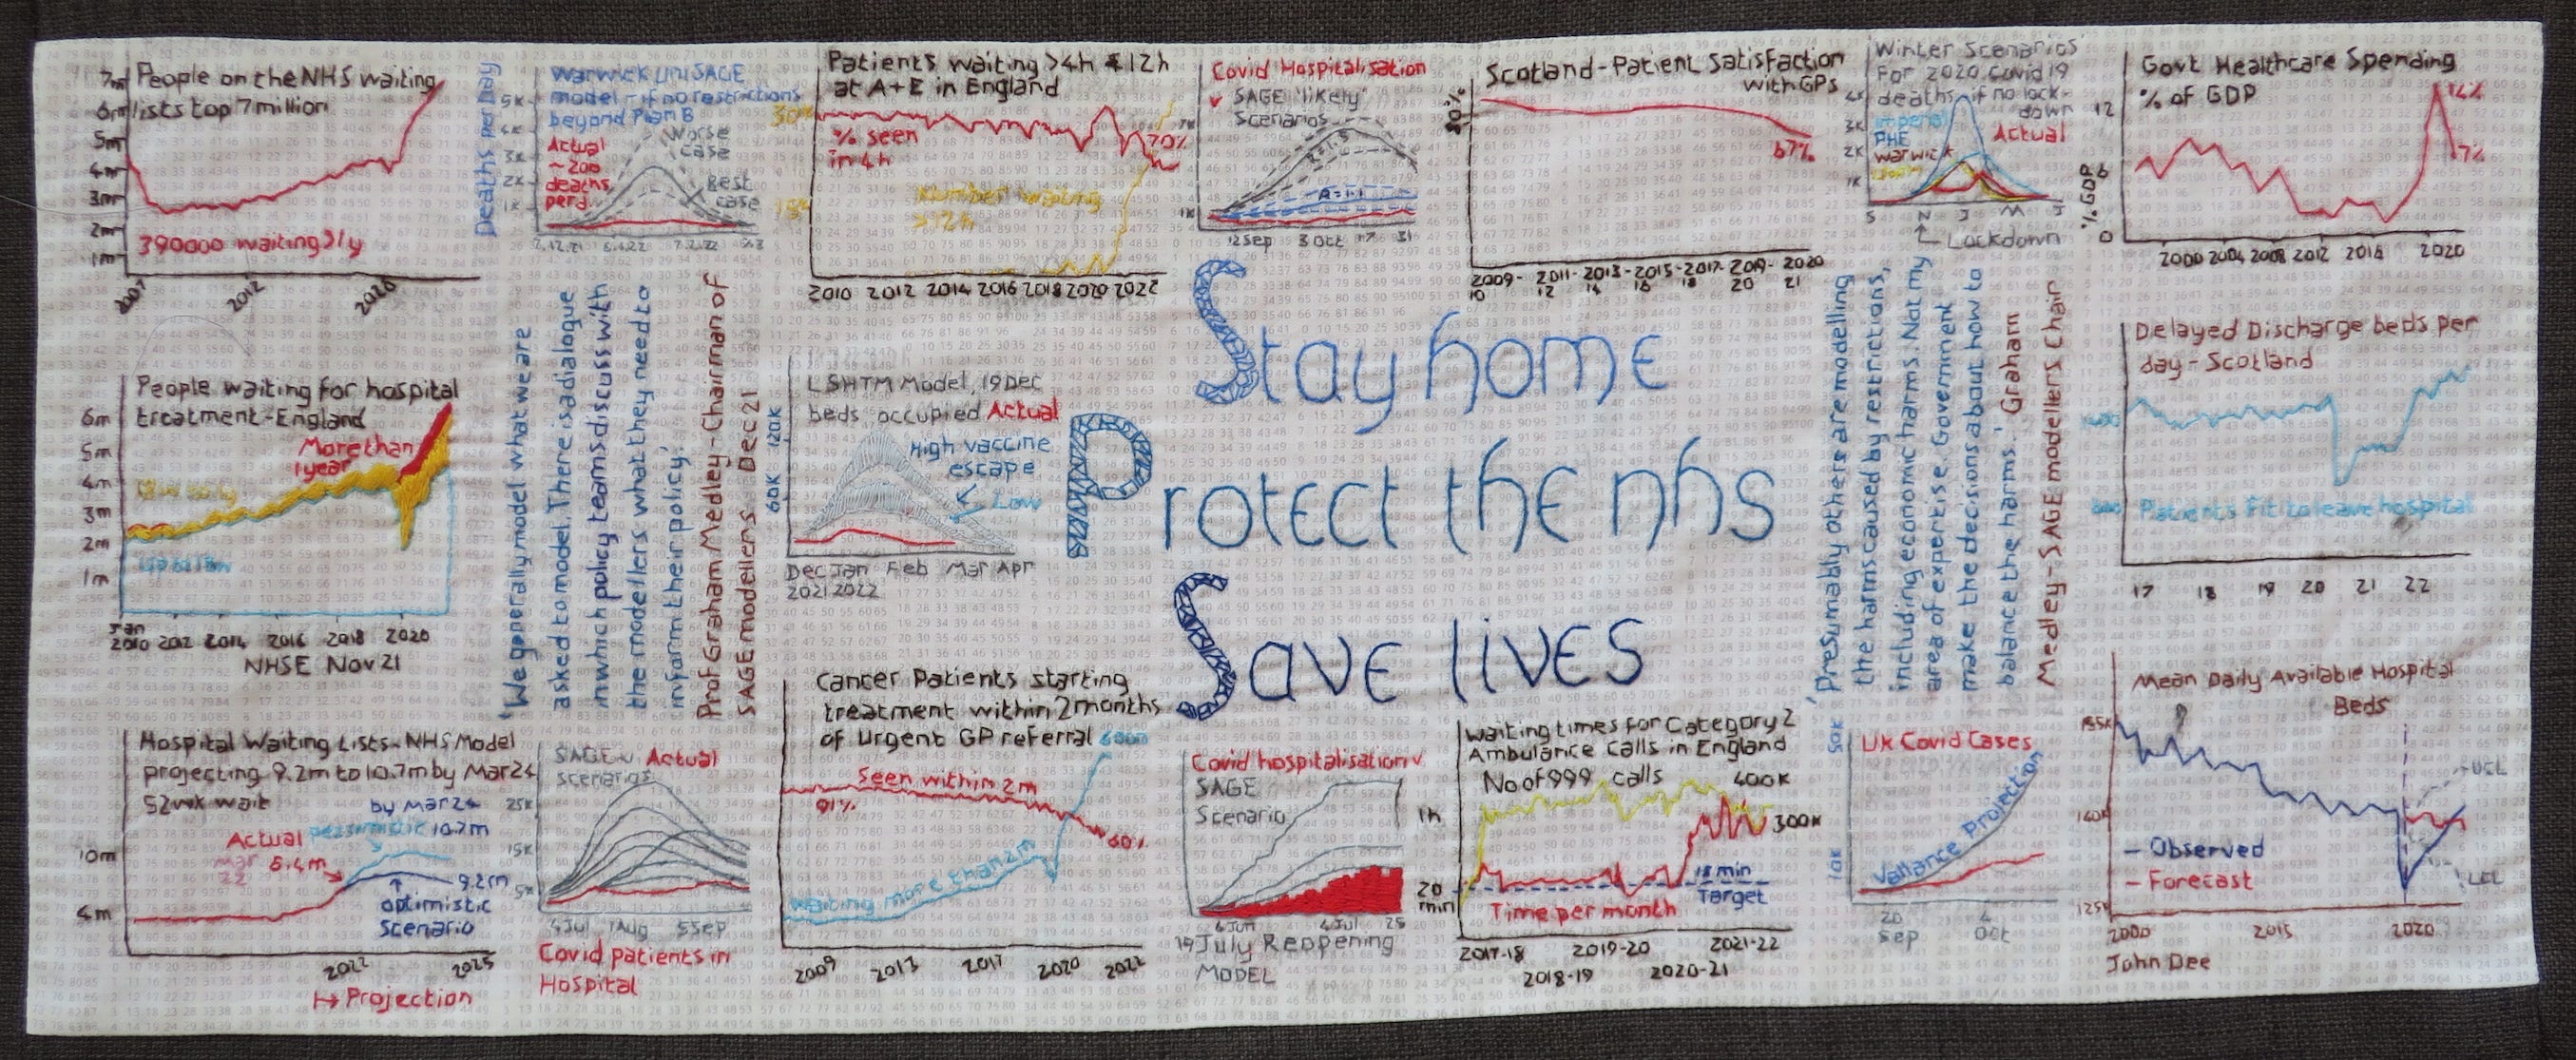 People on the NHS waiting
lists top 7million
7m
6m
5m
4m
3m
2m
1m
390000 waiting >1y
2007
2012
2020
Deaths per Day
Warwick Uni SAGE
model - if no restrictions
beyond Plan B
5K
4K
3K
2K
1K
Actual
~200
deaths
perd
Worse
case
Best
case
Patients waiting >4h & 12h
at A+E in England
% seen
in 4h
70%
Number waiting
>12h
2010 2012 2014 2016 2018 2020 2022
Covid Hospitalisation
v SAGE 'likely'
Scenarios
7K
1K
R=1.1
12Sep 3 Oct 17 31
Scotland-Patient Satisfaction
with GPs
67%
2009-10 2011-12 2013-14 2015-16 2017-18 2019-20 2020 21
Winter Scenarios
For 2020 Covid 19
deaths if no lock-
down
4K
3K
2K
1K
Imperial
PHE
Warwick
Actual
S N J M J
Lockdown
Govt Healthcare Spending
% of GDP
12
6
0
% GDP
7%
2000 2004 2008 2012 2016 2020
People waiting for hospital
treatment-England
6m
5m
4m
3m
2m
1m
More than
1year
Jan
2010 2012 2014 2016 2018 2020
NHSE Nov 21
'We generally model what we are
asked to model. There is a dialogue
in which policy teams discuss with
the modellers what they need to
inform their policy.'
Prof Graham Medley-Chairman of
SAGE modellers. Dec 21
LSHTM Model, 19Dec
beds occupied Actual
120K
60K
High vaccine
escape
Low
Dec Jan Feb Mar Apr
2021 2022
Stay home
Protect the nhs
Save lives
'Presumably others are modelling
the harms caused by restrictions,
including economic harms. Not my
area of expertise. Government
make the decisions about how to
balance the harms.' Graham
Medley-SAGE modellers Chair
Delayed Discharge beds per
day-Scotland
Patients Fit to leave hospital
17 18 19 20 21 22
Hospital Waiting Lists-NHS Model
projecting 9.2m to 10.7m by Mar24
52wk wait
by Mar 24
pessimistic 10.7m
Actual
Mar
22
6.4m
10m
4m
9.2m
optimistic
Scenario
2022
2025
Projection
SAGE v Actual
scenarios
25K
15K
5K
4Jul 1Aug 5Sep
Covid patients in
Hospital
Cancer Patients starting
treatment within 2months
of Urgent GP referral
Seen within 2m
91%
60%
Waiting more than 2m
2009 2013 2017 2020 2022
Covid hospitalisation v
SAGE
Scenario
6 Jun 4 Jul 25
19 July Reopening
MODEL
Waiting times for Category 2
Ambulance calls in England
No of 999 calls
400K
300K
1h
20
min
18 min
Target
Time per month
2017-18 2019-20 2021-22
2018-19 2020-21
50K
10K
UK Covid Cases
Vallance Projection
20
Sep
4
Oct
Mean Daily Available Hospital
Beds
140K
125K
UCL
LCL
- Observed
- Forecast
2000 2015 2020
John Dee